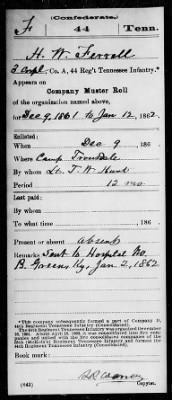 (Confederate.)
F 44 Tenn.
H. W. Ferrell
3 Corpl, Co. A, 44 Reg't Tennessee Infantry.*
Appears on
Company Muster Roll
of the organization named above,
for Dec 9, 1861 to Jan 12, 1862.
Enlisted:
When Dec 9, 186 .
Where Camp Trousdale
By whom Lt. T. W. Hunt
Period 12 mo
Last paid:
By whom
To what time , 186 .
Present or absent Absent
Remarks Sent to Hospital No.
B. Greens Ky, Jan 2, 1862
*This company subsequently formed a part of Company
44th Regiment Tennessee Infantry (Consolidated).
Book mark:
(642) Copyist.